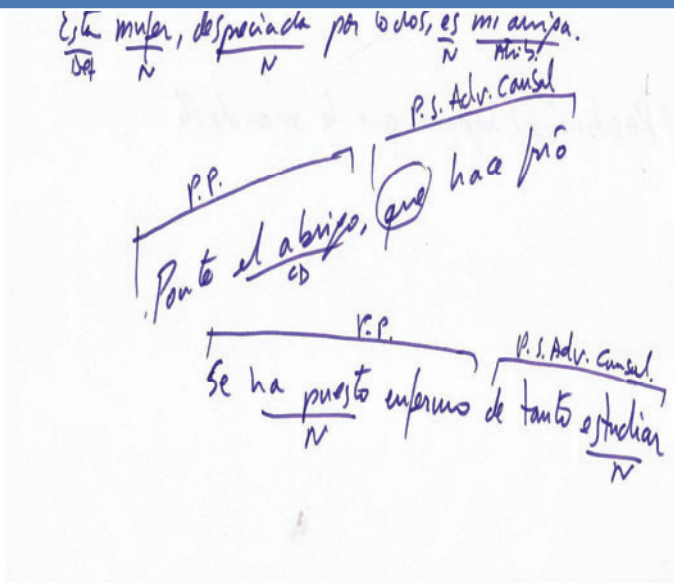 Esta mujer, despreciada por todos, es mi amiga.
Det N N N Atrib.
P.P. P.S. Adv. Causal
Ponte el abrigo, que hace frío
CD
P.P. P.S. Adv. Causal.
Se ha puesto enfermo de tanto estudiar
N N